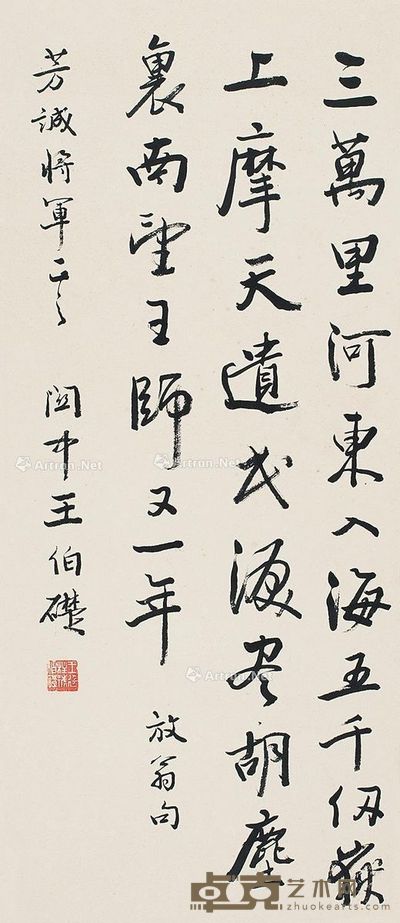 三萬里河東入海五千仭嶽
上摩天遺民淚盡胡塵
裏南望王師又一年
放翁句
芳誠將軍正之
關中王伯礎
Artron.Net
Artron.Net
Artron.Net
Artron.Net
卓克艺术网
zhuokearts.com